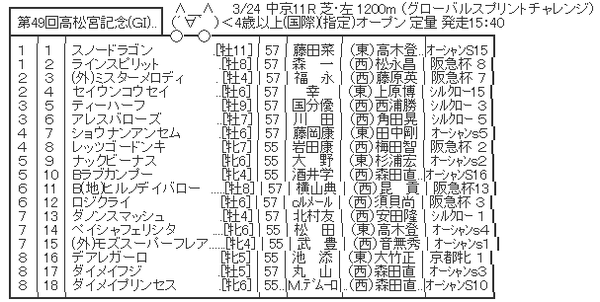 3/24 中京11R 芝・左 1200m (グローバルスプリントチャレンジ)
第49回高松宮記念(GI).. (´∀`) <4歳以上(国際)(指定)オープン 定量 発走15:40
1 1 スノードラゴン [牡11] 57 田菜 (東)高木登 オーシャンS15
1 2 ラインスピリット [牡8] 57 森 一 (西)松永昌 阪急杯 8
2 3 (外)ミスターメロディ [牡4] 57 福 永 (西)藤原英 阪急杯 7
2 4 セイウンコウセイ [牡6] 57 幸 (東)上原博 シルクロー15
3 5 ティーハーフ [牡9] 57 国分優 (西)西浦勝 シルクロー 3
3 6 アレスバローズ [牡7] 57 川 田 (西)角田晃 シルクロー 5
4 7 ショウナンアンセム [牡6] 57 藤岡康 (東)田中剛 オーシャンs5
4 8 レッツゴードンキ [牝7] 55 岩田康 (西)梅田智 阪急杯 2
5 9 ナックビーナス [牝6] 55 大 野 (東)杉浦宏 オーシャンs2
5 10 Bラブカンプー [牝4] 55 酒井学 (西)森田直.. オーシャンS16
6 11 B(地)ヒルノデイバロー [牡8] 57 横山典 (西)昆 貢 阪急杯13
6 12 ロジクライ [牡6] 57 cルメール (西)須貝尚 阪急杯 3
7 13 ダノンスマッシュ [牡4] 57 北村友 (西)安田隆 シルクロー 1
7 14 ペイシャフェリシタ [牝6] 55 松 田 (東)高木登 オーシャンs4
7 15 (外)モズスーパーフレア [牝4] 55 武 豊 (西)音無秀 オーシャンs1
8 16 デアレガーロ [牝5] 55 池 添 (東)大竹正 京都牝 1
8 17 ダイメイフジ [牡5] 57 丸 山 (西)森田直.. オーシャンs3
8 18 ダイメイプリンセス [牝6] 55 M.デムーロ (西)森田直.. オーシャンS10